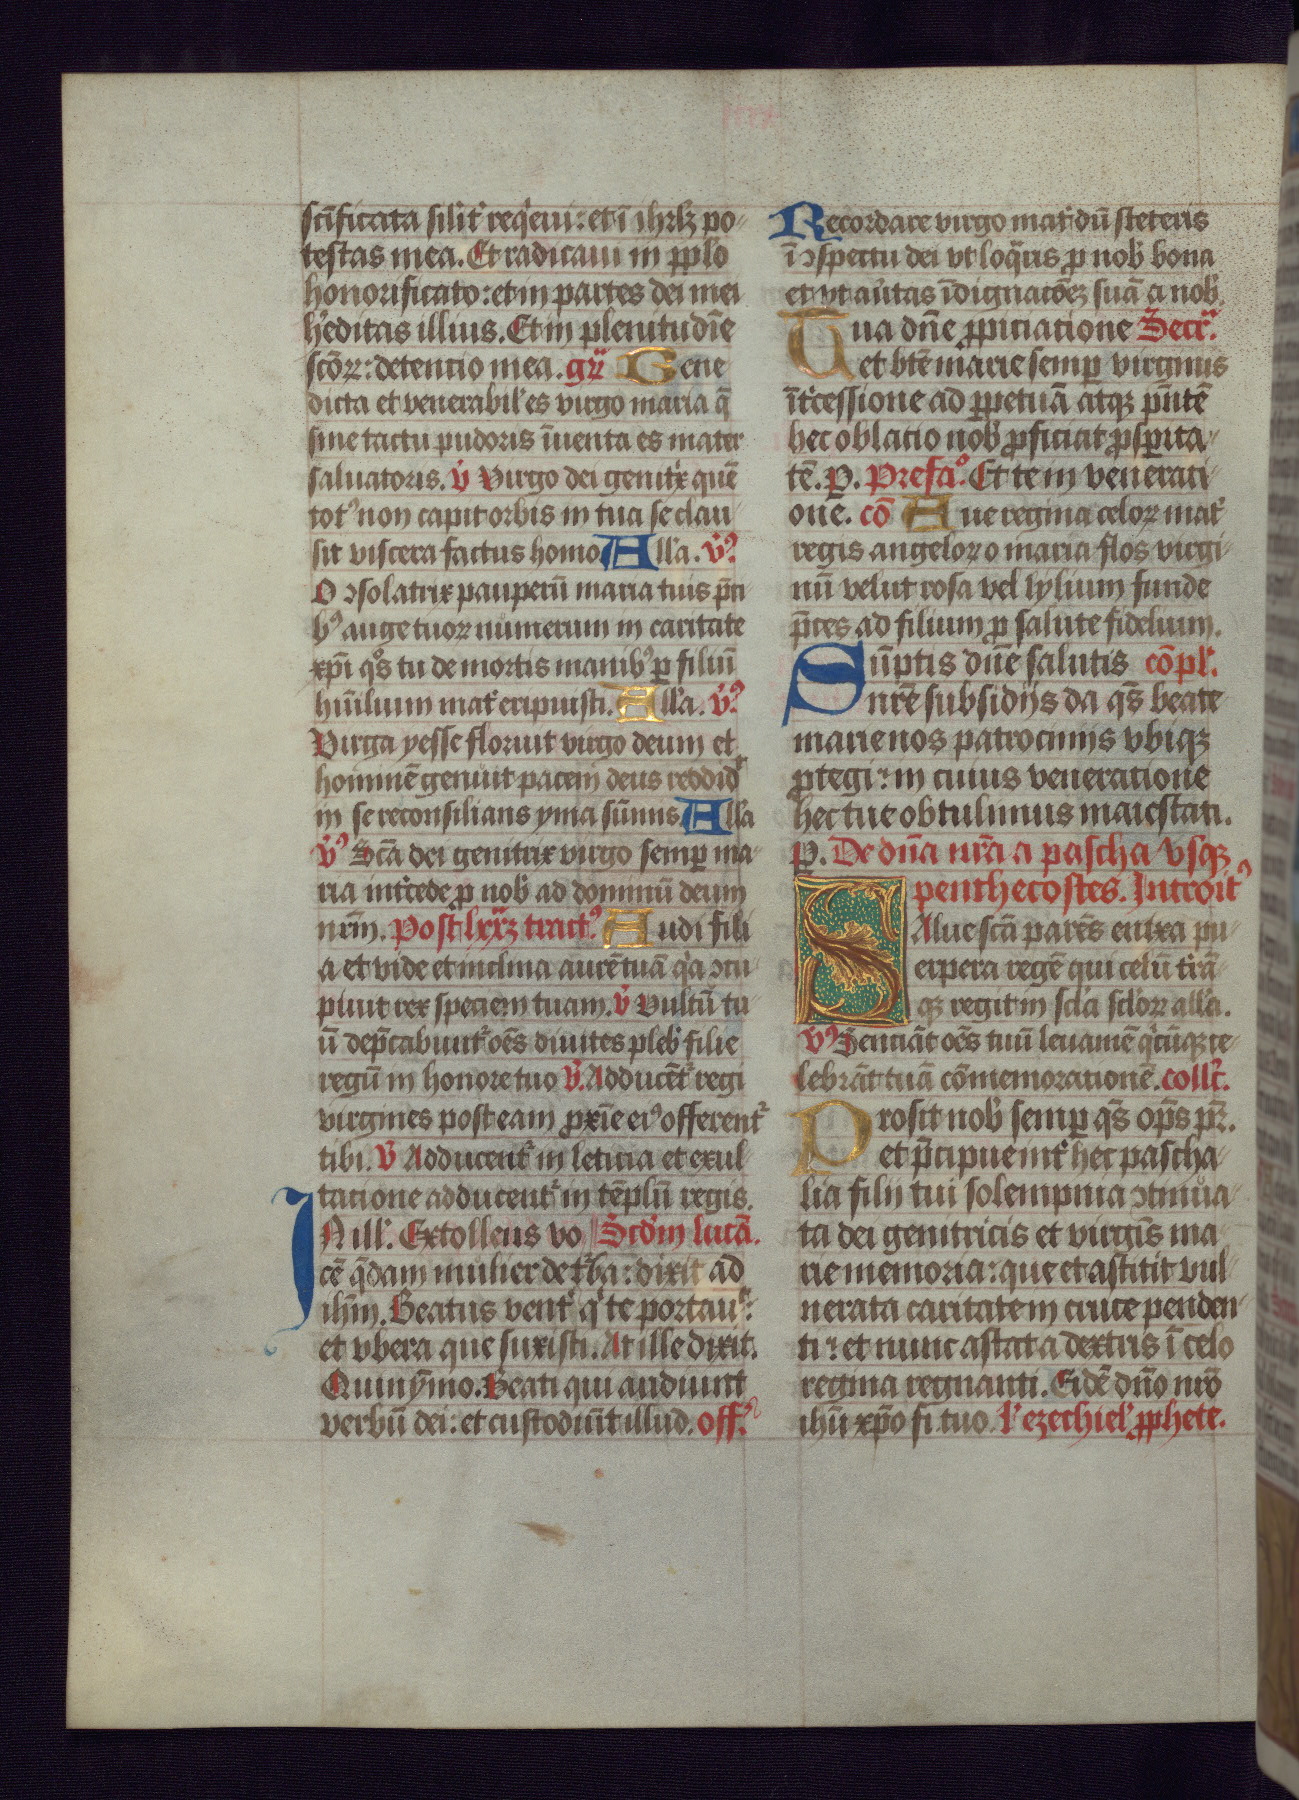 scīficata silīt reqeui: et ī ihrlꝫ po-
testas mea. Et radicaui in pplo
honorificato: et in partes dei mei
h'editas illius. Et in plenitudīe
scōꝝ: detentio mea. gr̄ Gene
dicta et venerabil'es virgo maria q̄
sine tactu pudoris īuenta es mater
saluatoris. v̇ Virgo dei genitx quē
totꝰ non capit orbis in tua se clau-
sit viscera factus homo Alla. v̇ꝰ
O ↄsolatrix pauperū maria tuis p̄ci
bꝰ auge tuoꝝ numerum in caritate
xp̄i qͦs tu de mortis manibꝰ ꝑ filiū
hūilium mat' eripuisti. Alla. v̇ꝰ
Virga yesse floruit virgo deum et
hominē genuit pacem deus reddid'
in se reconsilians yma sūmis Alla
v̇ꝰ Scā dei genitrix virgo semꝑ ma-
ria int'cede ꝓ nob' ad dominū deum
nr̄m. Post lxxꝫ tractꝰ Audi fili
a et vide et inclina aurē tuā q'a ↄcu-
piuit rex speciem tuam. v̇ Vultū tu-
ū dep̄cabunt' oēs diuites pleb' filie
regū in honore tuo v̇. Adducēt' regi
virgines post eam ꝓxīe eiꝰ offerent'
tibi. v̇ Adducent' in leticia et exul-
tatione adducent' in tēplū regis.
IN ill'. Extollens vo Scd'm lucā.
cē q̄dam mulier de t'ba: dixit ad
ih̄m. Beatus vent' q' te portau':
et vbera que suxisti. At ille dixit.
Quinȳmo. Beati qui audiunt
verbū dei: et custodiūt illud. off'ꝰ
Recordare virgo mat' dū steteris
ī ↄspectu dei vt loq̄ris ꝓ nob' bona
et vt au'tas īdignacōeꝫ suā a nob'.
Tua dn̄e ꝓpiciatione Secr'ͣ.
et btē marie semꝑ virginis
īt'cessione ad ꝑpetuā atqꝫ p̄ntē
hec oblatio nob' ꝓficiat ꝓsꝑita-
tē. P. Prefaͦ. Et te in venerati-
one. cō Aue regina celoꝝ mat'
regis angeloꝝ o maria flos virgi-
nū velut rosa vel lylium funde
p̄ces ad filium ꝓ salute fidelium.
Sūptis dn̄e salutis cōpl'.
nr̄e subsidijs da qs̄ beate
marie nos patrocinijs vbiqꝫ
ꝓtegi: in cuius veneratione
hec tue obtulimus maiestati.
P. De dn̄a nr̄a a pascha vsqꝫ
penthecostes. Introitꝰ
SAlue scā parēs enixa pu-
erpera regē qui celū t'rā-
qꝫ regit in sc'la sc'loꝝ alla.
v̇ꝰ Senciāt oēs tuū leuamē q'cūqꝫ ce-
lebrāt tuā cōmemorationē. coll'c̄.
Prosit nob' semꝑ qs̄ op̄s pr̄.
et p̄cipue int' hec pascha-
lia filij tui solempnia ↄtinua-
ta dei genitricis et virgīs ma-
rie memoria: que et astitit vul-
nerata caritate in cruce penden-
ti: et nunc astat a dextris ī celo
regina regnanti. Eidē dn̄o nr̄o
ihū xp̄o fi. tuo. l' ezechiel' ꝓphete.